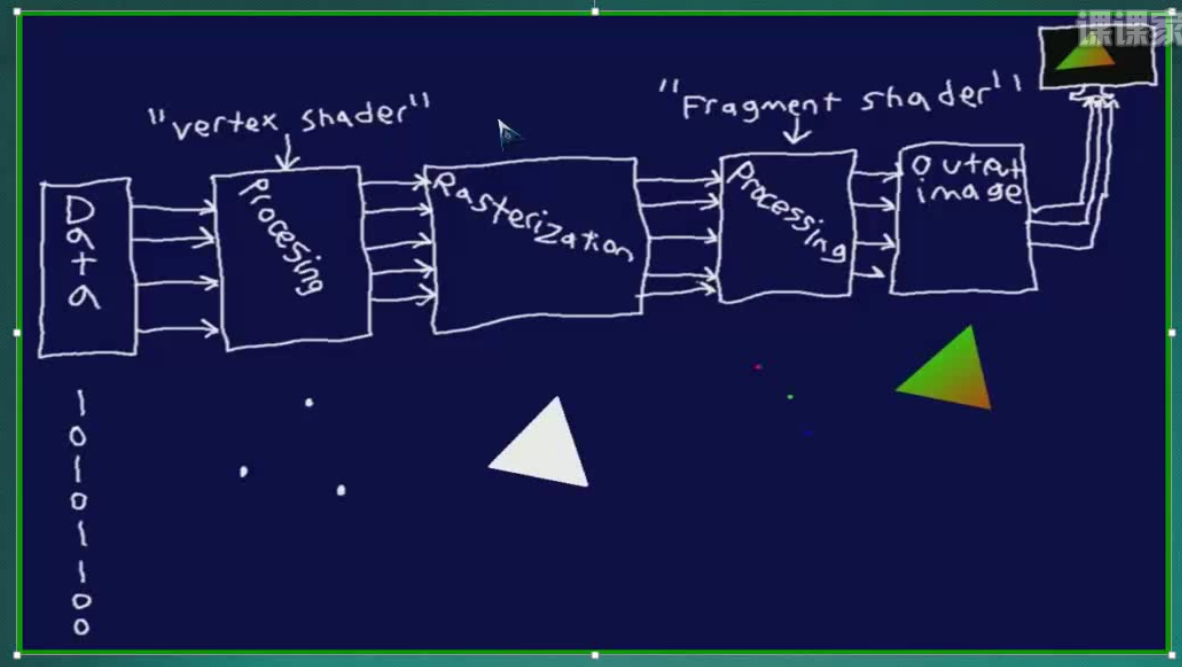 课课家
"vertex shader"
"Fragment shader"
Data
Procesing
Rasterization
Processing
output
image
1
0
1
0
1
1
0
0